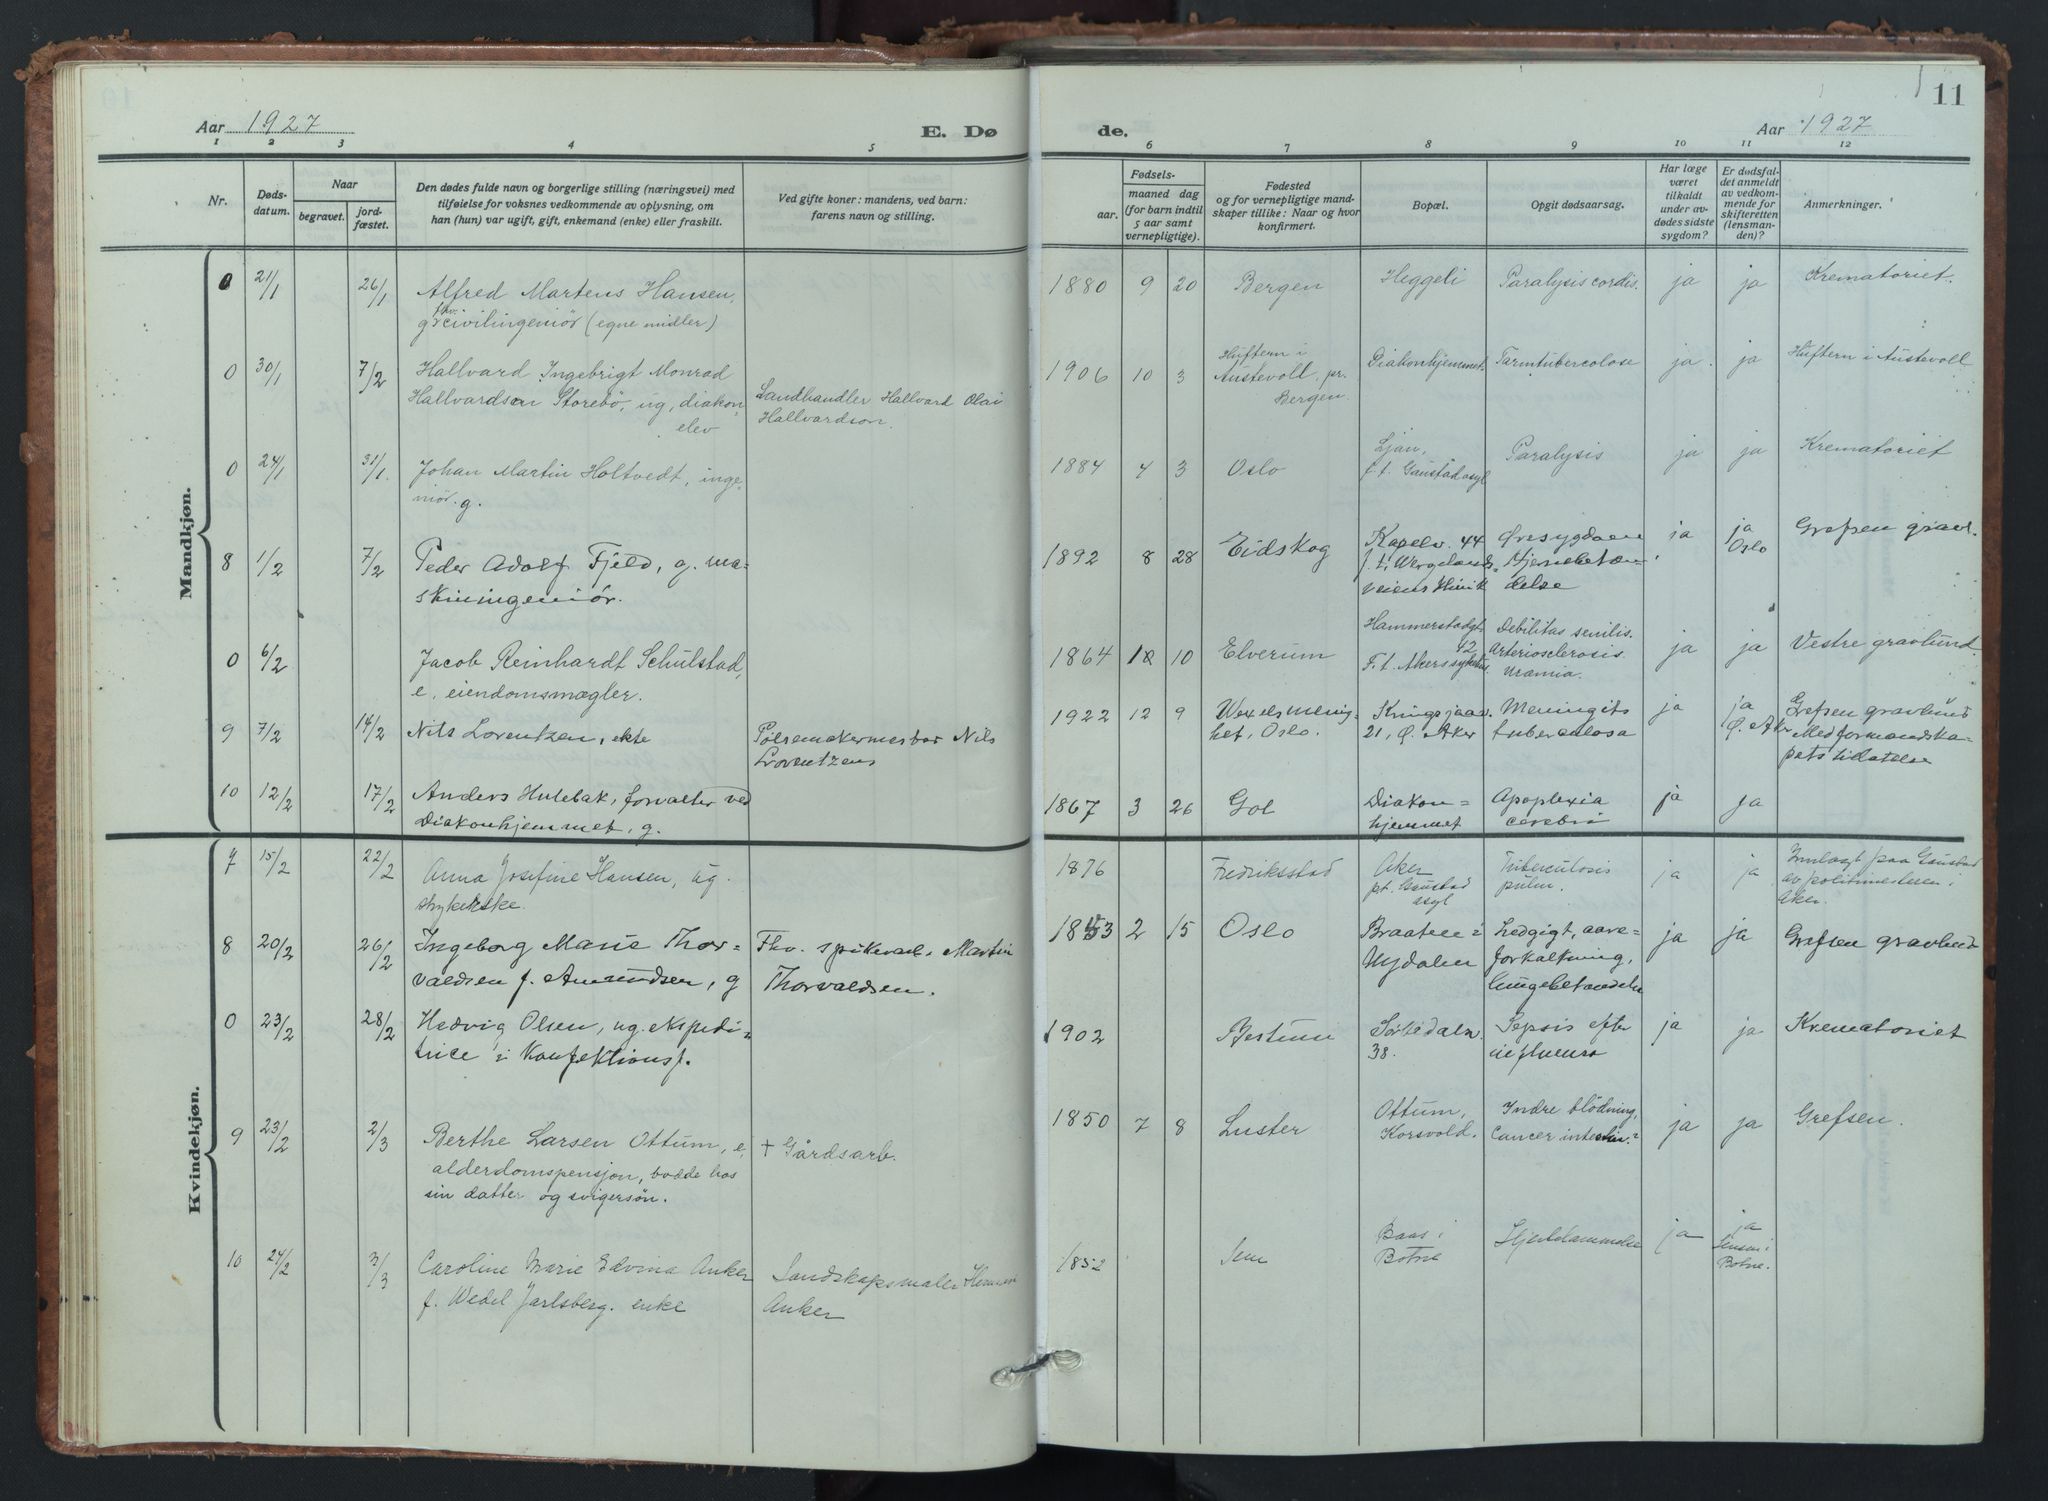 11
Aar 1927
E. Dø
de.
Aar 1927
1 2 3 4 5 6 7 8 9 10 11 12
Nr.
Døds-
datum.
Naar
begravet.
jord-
fæstet.
Den dødes fulde navn og borgerlige stilling (næringsvei) med
tilføielse for voksnes vedkommende av oplysning, om
han (hun) var ugift, gift, enkemand (enke) eller fraskilt.
Ved gifte koner: mandens, ved barn:
farens navn og stilling.
Fødsels-
aar.
maaned dag
(for barn indtil
5 aar samt
vernepligtige).
Fødested
og for vernepligtige mand-
skaper tillike: Naar og hvor
konfirmert.
Bopæl.
Opgit dødsaarsag.
Har læge
været
tilkaldt
under av-
dødes sidste
sygdom?
Er dødsfal-
det anmeldt
av vedkom-
mende for
skifteretten
(lensman-
den)?
Anmerkninger.
Mandkjøn.
0 21/1 26/1 Alfred Martens Hansen,
g. fhv. civilingeniør (egne midler)
1880 9 20 Bergen Heggeli Paralysis cordis. ja ja Krematoriet.
0 30/1 7/2 Hallvard Ingebrigt Monrad
Hallvardson Storebö, ug, diakon-
elev
Landhandler Hallvard Olai
Hallvardson.
1906 10 3 Huftern i
Austevoll, pr.
Bergen.
Diakonhjemmet. Tarmtubercolose ja. ja Huftern i Austevoll
0 24/1 31/1. Johan Martin Holtvedt, inge-
niör. g.
1884 4 3 Oslo Ljan,
f. t. Gaustad asyl
Paralysis ja ja Krematoriet
8 1/2 7/2 Peder Adolf Fjeld, g. ma-
skiningeniør.
1892 8 28 Eidskog Kapelv. 44
f. t. Wergelands-
veiens Klinik
Øresygdom
Hjernebetæn-
delse
ja ja
Oslo
Grefsen gravl.
0 6/2 Jacob Reinhardt Schulstad,
e, eiendomsmægler.
1864 10 Elverum Hammerstadgt
42
F. t. Akers sykehus
Debilitas senilis.
Arteriosclerosis.
Uræmia.
ja ja Vestre gravlund.
9 7/2 14/2 Nils Lorentzen, ekte
Pølsemakermester Nils
Lorentzens
1922 12 9 Wexelsmenig-
het, Oslo.
Kringsjaav.
21, Ø. Aker
Meningits
tuberculosa
ja ja
Ø. Aker
Grefsen gravlund
Med formandska-
pets tilatelse
10 12/2 17/2 Anders Hulebak, forvalter ved
Diakonhjemmet, g.
1867 3 26 Gol Diakon=
hjemmet
Apoplexia
cerebri
ja ja
Kvindekjøn.
7 15/2 22/2 Anna Josefine Hansen, ug.
strykerske.
1876 Fredriksstad Aker
pt. Gaustad
asyl
Tuberculosis
pulm.
ja ja Innlagt paa Gaustad
av politimesteren i
Aker.
8 20/2 26/2 Ingeborg Marie Thor=
valdsen f. Amundsen, g
Fhv. spikerarb. Martin
Thorvaldsen.
1853 2 15 Oslo Braaten i
Nydalen
Ledgigt, aare-
forkalkning,
Lungebetændelse
ja ja Grefsen gravlund
0 23/2 28/2 Hedvig Olsen, ug. ekspedi=
trice i Konfektionsf.
1902 Bestum Sörkedalsv.
38.
Sepsis efter
influensa
ja ja Krematoriet
9 23/2 2/3 Berthe Larsen Ottum, e,
alderdomspensjon, bodde hos
sin datter og svigersön.
+ Gårdsarb.
1850 7 8 Luster Ottum,
Korsvold.
Indre blödning,
Cancer intestin.?
ja ja Grefsen.
10 24/2 3/3 Caroline Marie Edvina Anker
f. Wedel Jarlsberg. enke
Landskapsmaler Herman
Anker
1852 Sem Baas i
Botne
Hjertelammelse ja ja
Lensm. i
Botne.